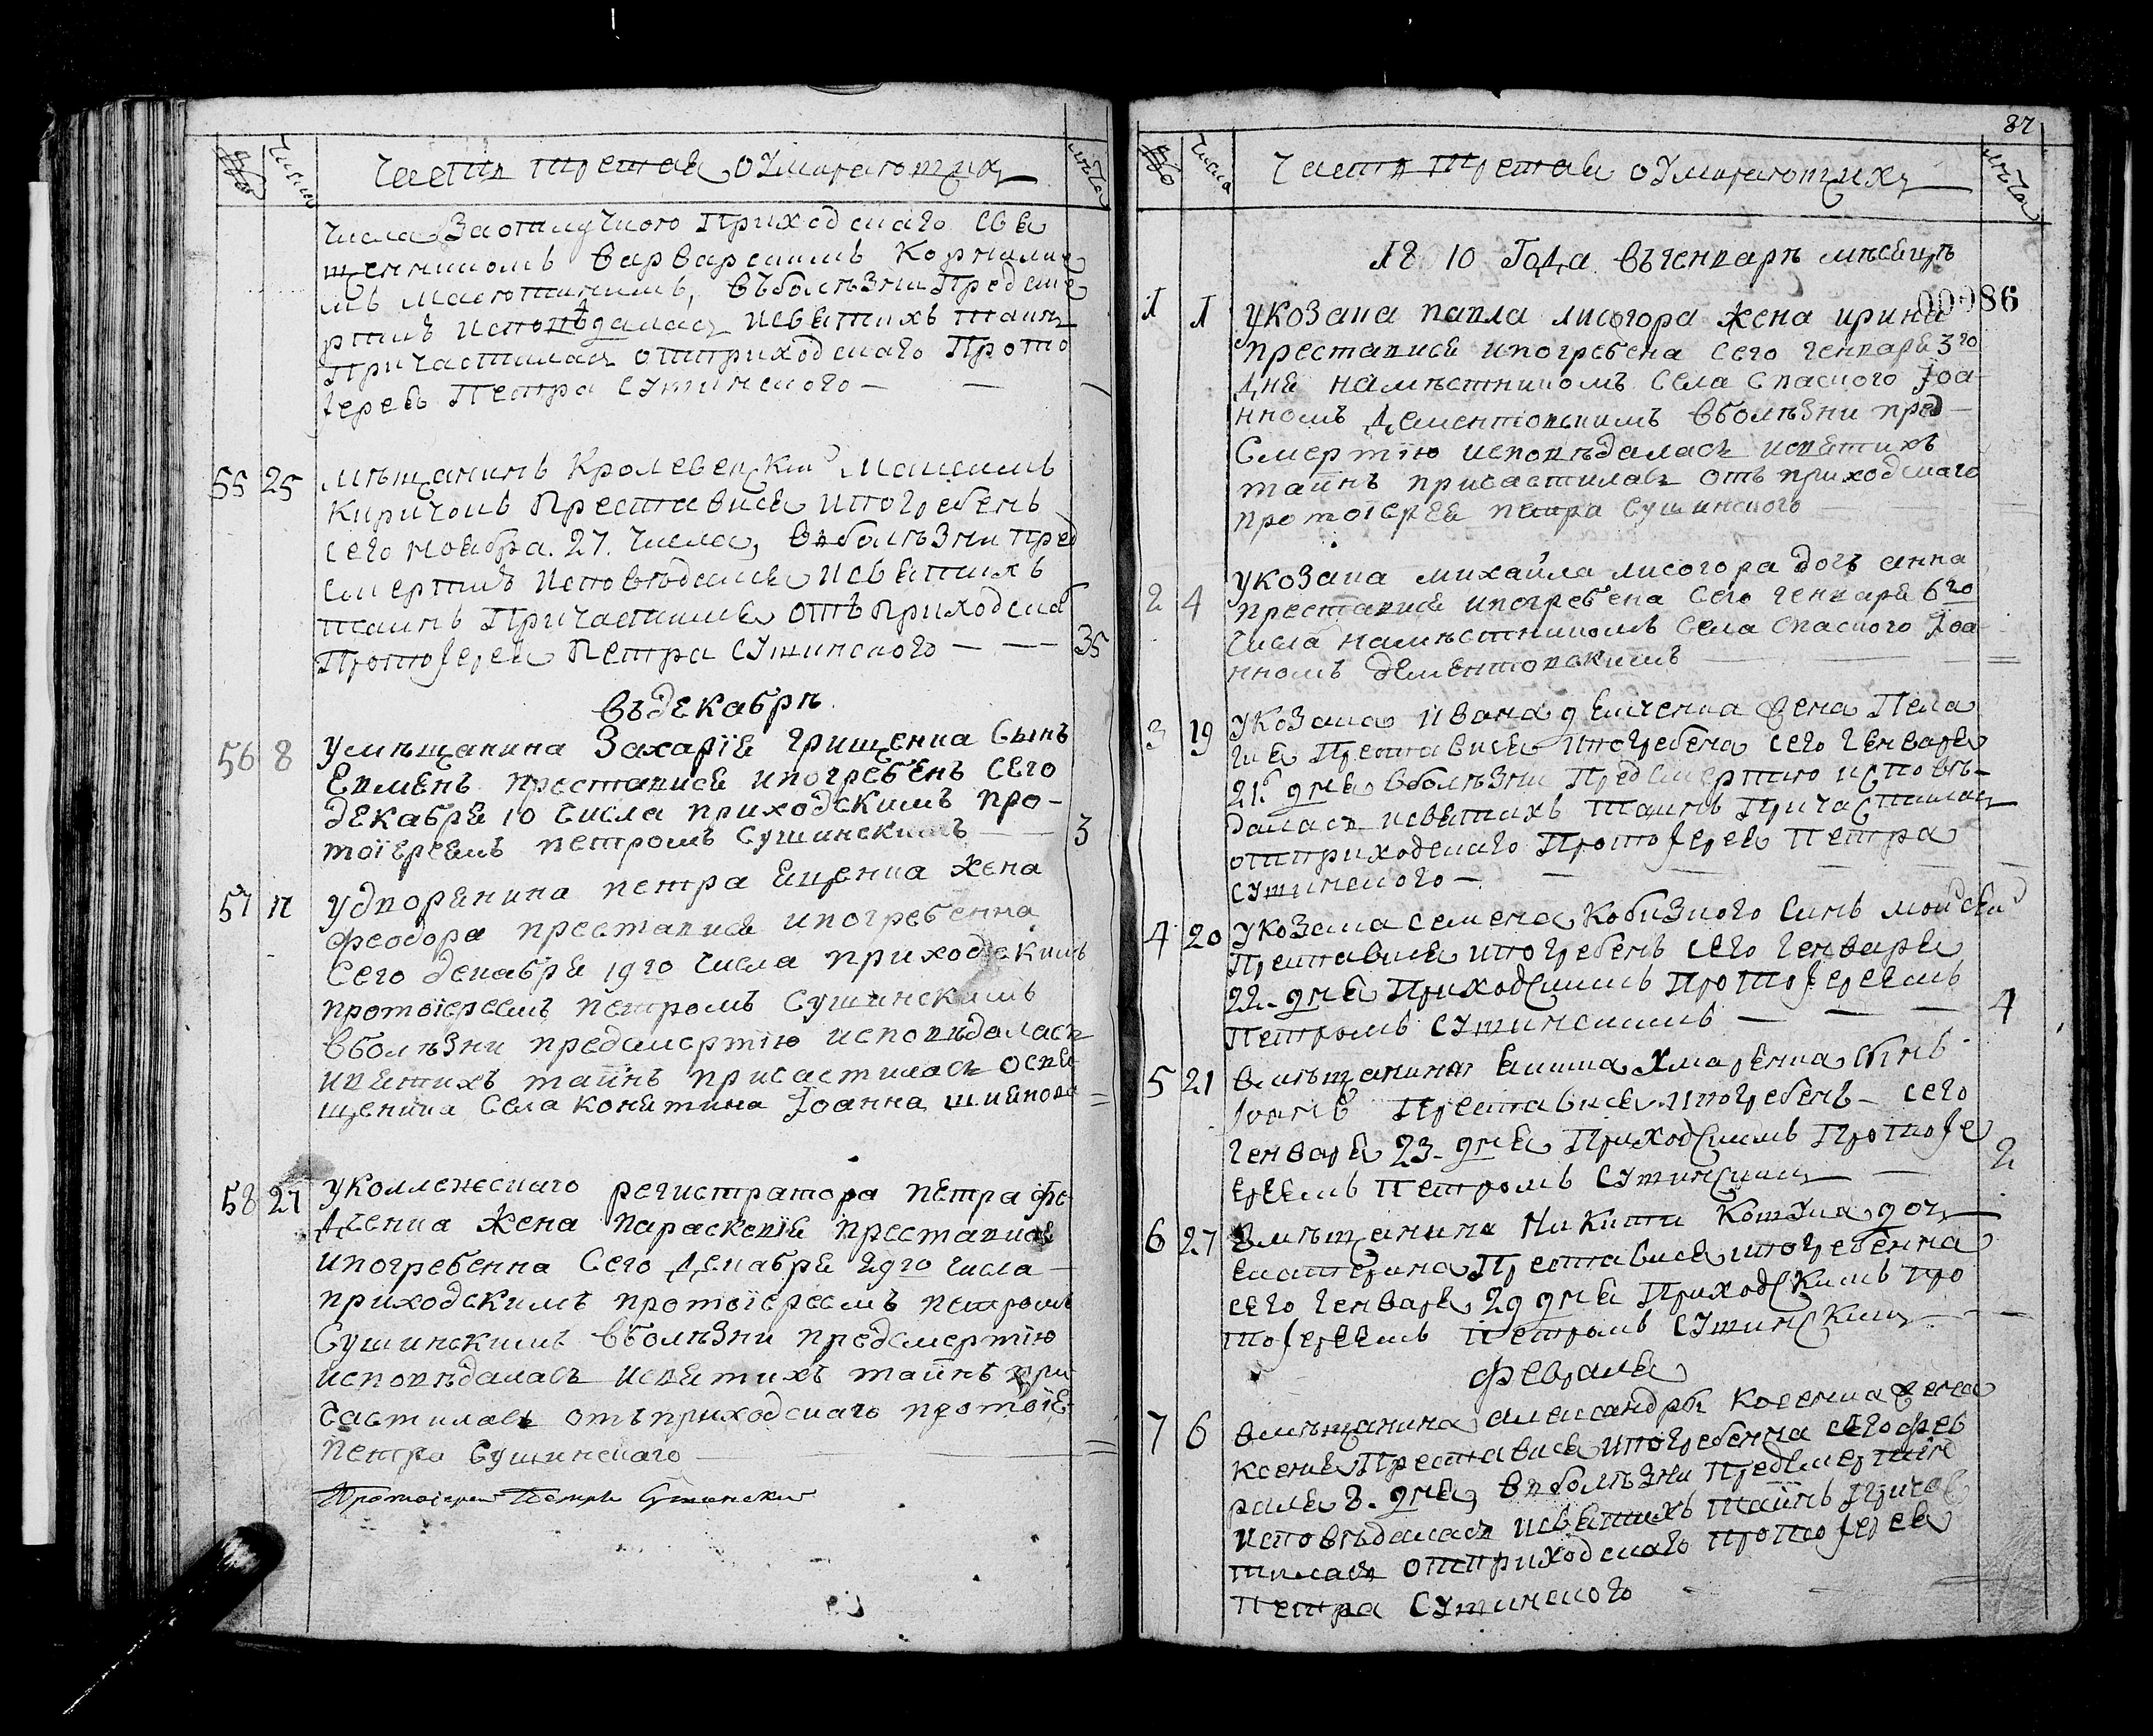 Числа
Часть третая оумирающихъ
лѣта
числа Заотлучкою Приходскаго Свя
щенникомъ Варварскимъ Корнилие
мъ Маютинимъ, въболѣзни Предсме
ртиѣ исповѣдалась исвятихъ таинъ
Причастилась отприходскаго Прото
Іерея Петра Сушинского — —
55 25 Мѣщанинъ Кролевецкий Максимъ
Киричокъ Преставися ипогребенъ
сего ноября. 27. Числа, въболѣзни Пред
смертиѣ исповѣдался исвятихъ
таинъ Причастился отъ Приходска
ПротоІерея Петра Сушинского — — 35
въдекабрѣ
56 8 Умѣщанина Захарїя Грищенка Сынъ
Евменъ преставися ипогребенъ Сего
декабря 10 числа приходскимъ про-
тоїереемъ петромъ Сушинскимъ — 3
57 17 Удворянина петра Яценка Жена
феодора преставися ипогребенна
Сего декабря 19го числа приходскимъ
протоїереемъ петромъ Сушинскимъ
вболѣзни предсмертїю исповѣдалась
ивятихъ таинъ причастилась освя
щеника Села Конятина Іоанна
58 27 Уколлежскаго регистратора петра Фе
дченка Жена параскевїя преставися
ипогребенна Сего декабря 29го числа —
приходскимъ протоїереемъ петромъ
Сушинскимъ вболѣзни предсмертїю
исповѣдалась исвятихъ таинъ при
частилась отъприходскаго протоїе
петра Сушинскаго —
Протоіерей Петръ Сушински
87
Числа
Часть Третая оУмирающихъ
лѣта
18 10 Года въгенварѣ мѣсяцѣ
00086
1 1 Укозака павла лисогора жена ирина
преставися ипогребена сего генваря 3го
дня намѣстникомъ Села Спаского Іоа-
нномъ Дементовскимъ вболѣзни пред-
Смертїю исповѣдалась исвятихъ
таинъ причастилась отъ приходскаго
протоїерея петра Сушинского
2 4 Укозака михайла лисогора дочъ анна
преставися ипогребена Сего генваря 6го
числа намѣстникомъ Села Спаского Іоа
нномъ дементовскимъ —
3 19 Укозака Ивана дямченка жена Пела
гия Преставися ипогребена сего Генваря
21го дня вболѣзни Предсмертию исповѣ-
далась исвятихъ таинъ Причастилась
отприходскаго ПротоІерея Петра
Сушинского —
4 20 Укозака Семена Кобизкого Синъ Мойсей
Преставися ипогребенъ сего генваря
22. дня Приходскимъ ПротоІереемъ
Петромъ Сушинскимъ — — 4
5 21 Вмѣщанина Якима Хмаренка Сынъ
Іоанъ Преставися ипогребенъ- сего
генваря 23. дня Приходскимъ ПротоІе
ереемъ Петромъ Сушинскимъ — 2
6 27 Вмѣщанина Никити Котхла дочъ
екатерина Преставися ипогребенна
сего генваря 29 дня Приходскимъ Про
тоІереемъ Петромъ Сушинскимъ
февраля
7 6 Вмѣщанина Александра Косенка жена
Ксения Преставися ипогребенна сего фев
раля 8. дня, въболѣзни Предсмертїи
исповѣдалась исвятихъ таинъ Причас
тилась отприходскаго ПротоІерея
Петра Сушинского